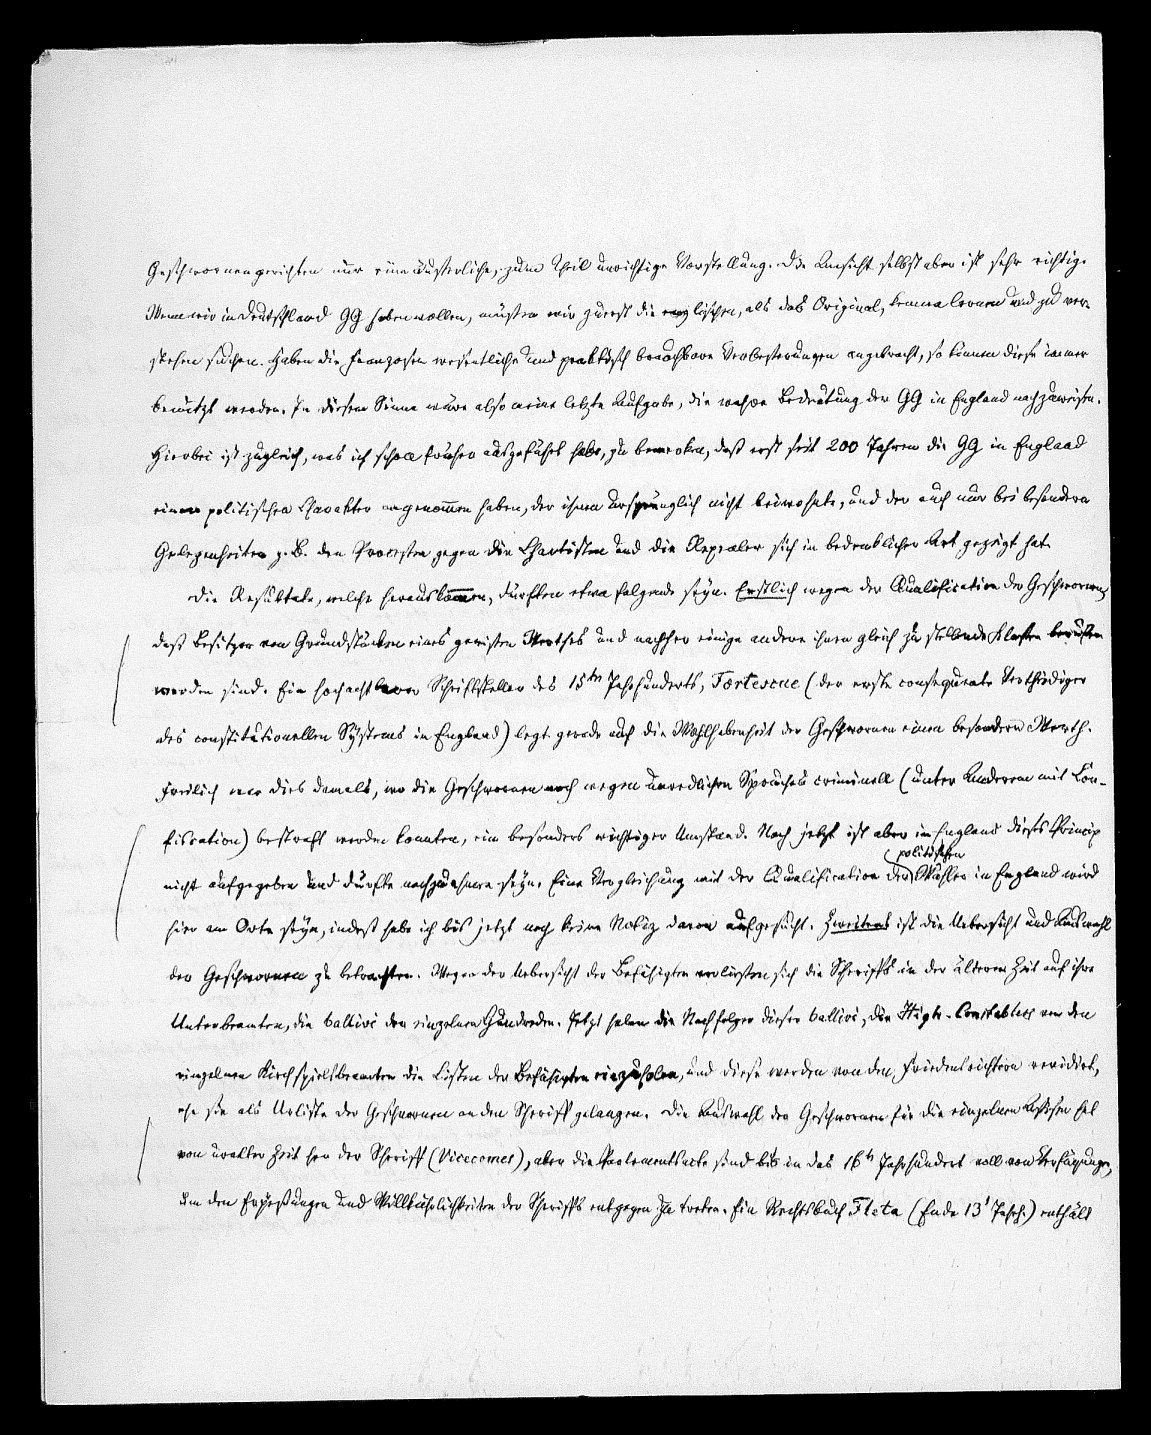 Geschwornengerichten nur eine äusserliche, zum Theil unrichtige Vorstellung. Die Ansicht selbst aber ist sehr richtig.
Wenn wir in Deutschland GG haben wollen, müssen wir zuerst die englischen, als das Original, kennen lernen und zu ver-
stehen suchen. Haben die Franzosen wesentliche und praktisch brauchbare Verbesserungen angebracht, so können diese immer
benützt werden. In diesem Sinne wäre also meine letzte Aufgabe, die wahre Bedeutung der GG in England nachzuweisen.
Hierbei ist zugleich, was ich schon früher ausgeführt habe, zu bemerken, daß erst seit 200 Jahren die GG in England
einen politischen Charakter angenommen haben, der ihnen ursprünglich nicht beiwohnte, und der auch nur bei besondern
Gelegenheiten z. B. den Processen gegen die Chartisten und die Repealer sich in bedenklicher Art gezeigt hat.
Die Resultate, welche herauskommen, dürften etwa folgende seyn. Erstlich wegen der Qualification der Geschwornen,
daß Besitzer von Grundstücken eines gewissen Werthes und nachher einige andere ihnen gleich zu stellende Klassen berufen
worden sind. Ein hochachtbarer Schriftsteller des 15ten Jahrhunderts, Fortescue (der erste consequente Vertheidiger
des constitutionellen Systems in England) legt gerade auf die Wohlhabenheit der Geschwornen einen besondern Werth.
Freilich war dies damals, wo die Geschwornen noch wegen unredlichen Spruches criminell (unter Anderem mit Con-
fiscation) bestraft werden konnten, ein besonders wichtiger Umstand. Noch jetzt ist aber in England dieses Princip
nicht aufgegeben und dürfte nachzuahmen seyn. Eine Vergleichung mit der Qualification der politischen Wähler in England wird
hier am Orte seyn, indeß habe ich bis jetzt noch keine Notiz davon aufgesucht. Zweitens ist die Uebersicht und Auswahl
der Geschwornen zu betrachten. Wegen der Uebersicht der Befähigten verliessen sich die Sheriffs in der älteren Zeit auf ihre
Unterbeamten, die ballivi der einzelnen Hundreden. Jetzt haben die Nachfolger dieser ballivi, die High-Constables von den
einzelnen Kirchspielsbeamten die Listen der Befähigten einzuholen, und diese werden von den Friedensrichtern revidirt,
ehe sie als Urliste der Geschwornen an den Sheriff gelangen. Die Auswahl der Geschwornen für die einzelnen Assisen hat
von uralter Zeit her der Sheriff (Vicecomes), aber die Parlamentsacte sind bis in das 16te Jahrhundert voll von Verfügungen,
um den Erpressungen und Willkührlichkeiten der Sheriffs entgegen zu treten. Ein Rechtsbuch Fleta (Ende 13t Jahrh.) enthält